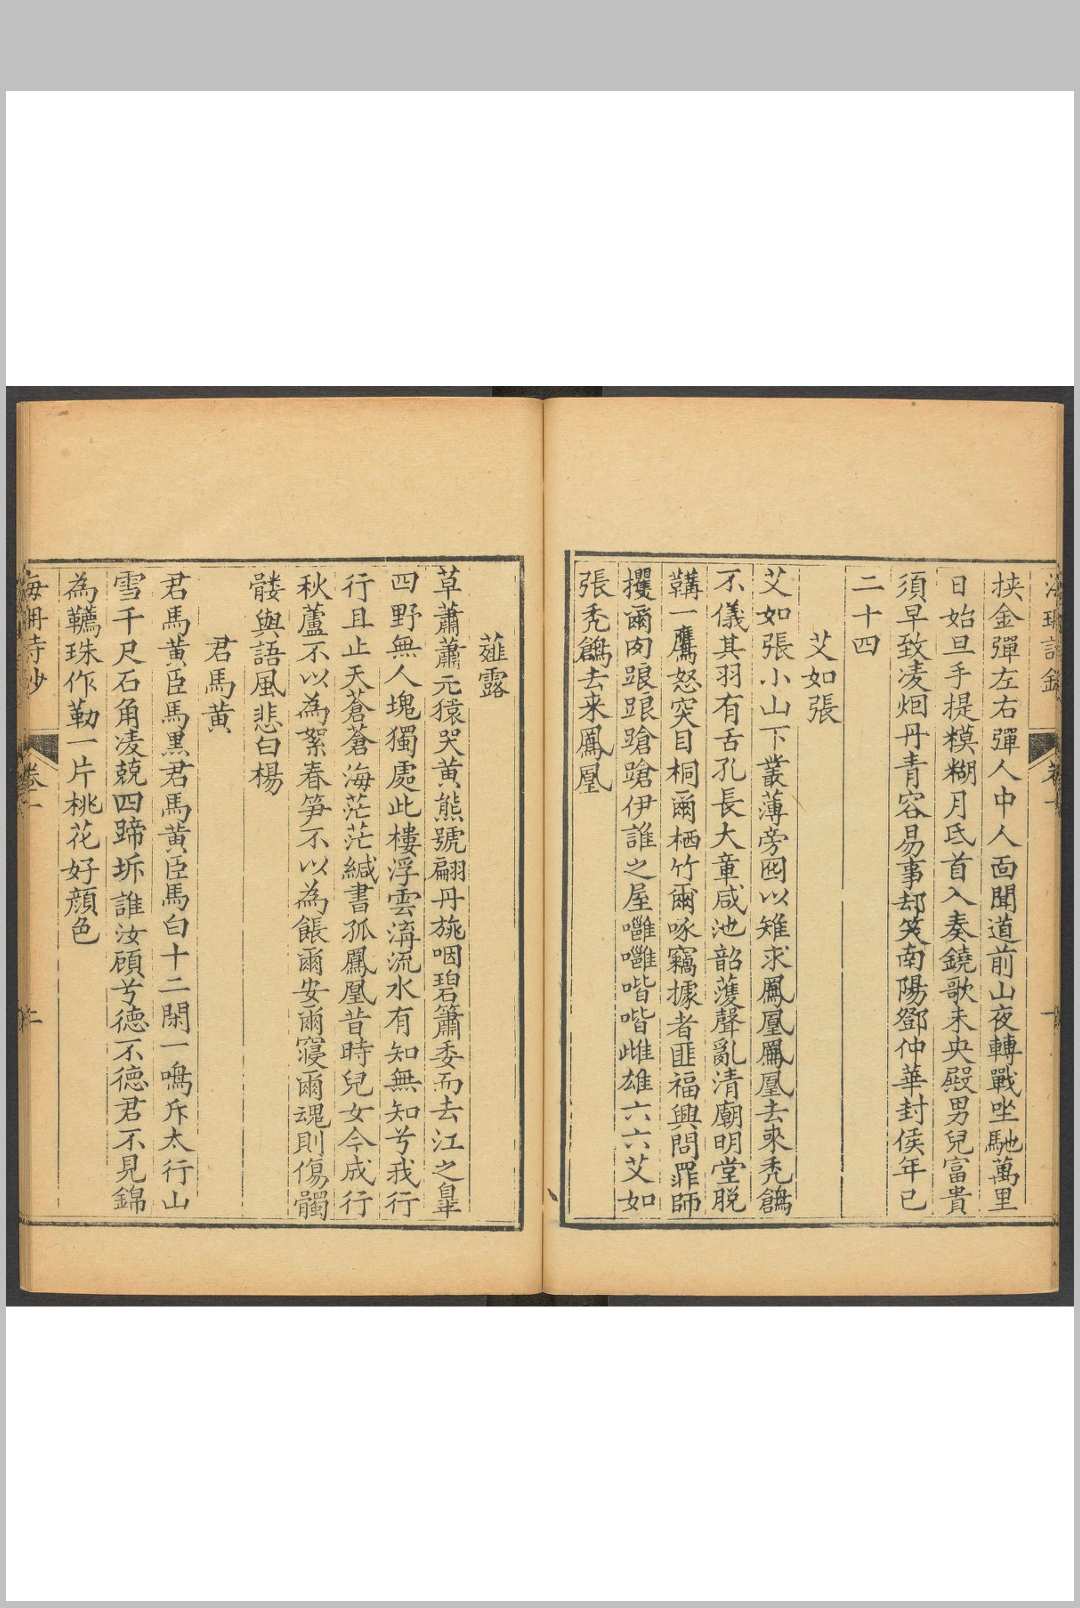 挾金彈左右彈人中人面聞道前山夜轉戰㘴馳萬里
日始旦手提模糊月氐首入奏鐃歌未央殿男兒富貴
須早致凌烟丹青容易事却笑南陽鄧仲華封侯年已
二十四
艾如張
艾如張小山下叢薄旁囮以雉求鳳凰鳳凰去來禿鶬
不儀其羽有舌孔長大章咸池韶濩聲亂清廟明堂脱
鞲一鷹怒突目桐爾栖竹爾啄竊據者匪福興問罪師
攫爾肉踉踉蹌蹌伊誰之屋雝雝喈喈雌雄六六艾如
張禿鶬去来鳳凰
薤露
草蕭蕭元猿哭黄熊號翩丹旐咽碧簫委而去江之皐
四野無人塊獨處此樓浮雲濟流水有知無知兮我行
行且止天蒼蒼海茫茫緘書孤鳳凰昔時兒女今成行
秋蘆不以為絮春笋不以為餦爾安爾寢爾魂則傷髑
髅與語風悲白楊
君馬黄
君馬黄臣馬黒君馬黄臣馬白十二閑一鳴斥太行山
雪千尺石角凌兢四蹄坼誰汝顧兮徳不徳君不見錦
為韉珠作勒一片桃花好顔色
卷一